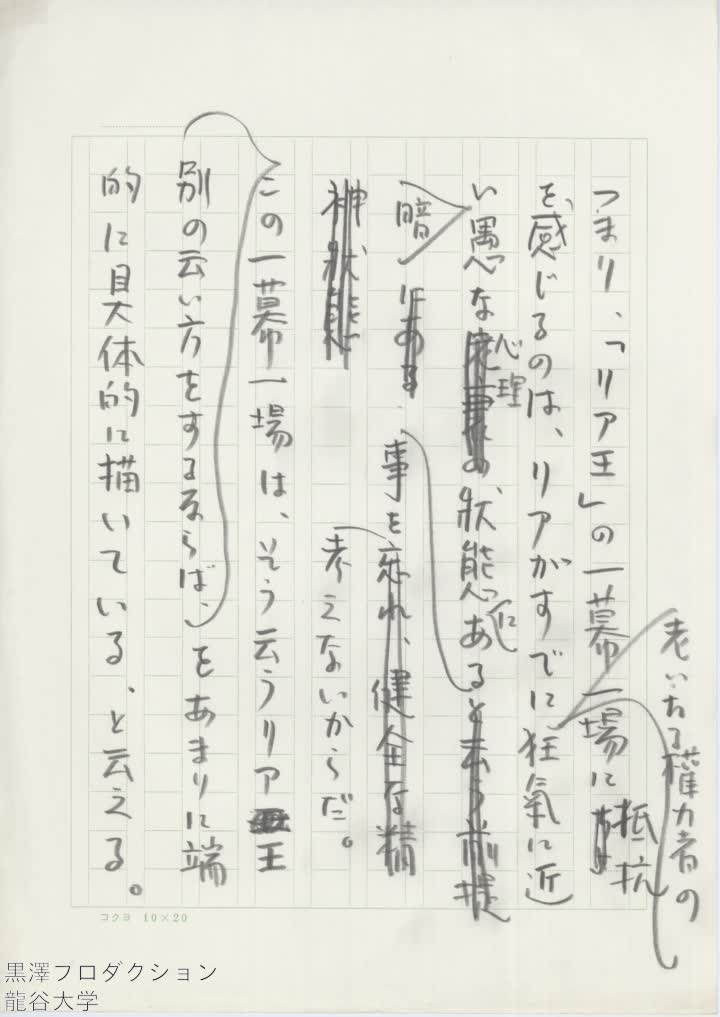 老いたる權力者の
つまり、「リア王」の一幕一場に抵抗
を感じるのは、リアがすでに狂氣に近
い愚な心理の状態にあると云う前提
暗にある事を忘れ、健全な精
神状態考えないからだ。
この一幕一場は、そう云うリア王
別の云い方をするならば、をあまりに端
的に具体的に描いている、と云える。
コクヨ 10×20
黒澤フロダクション
龍谷大学